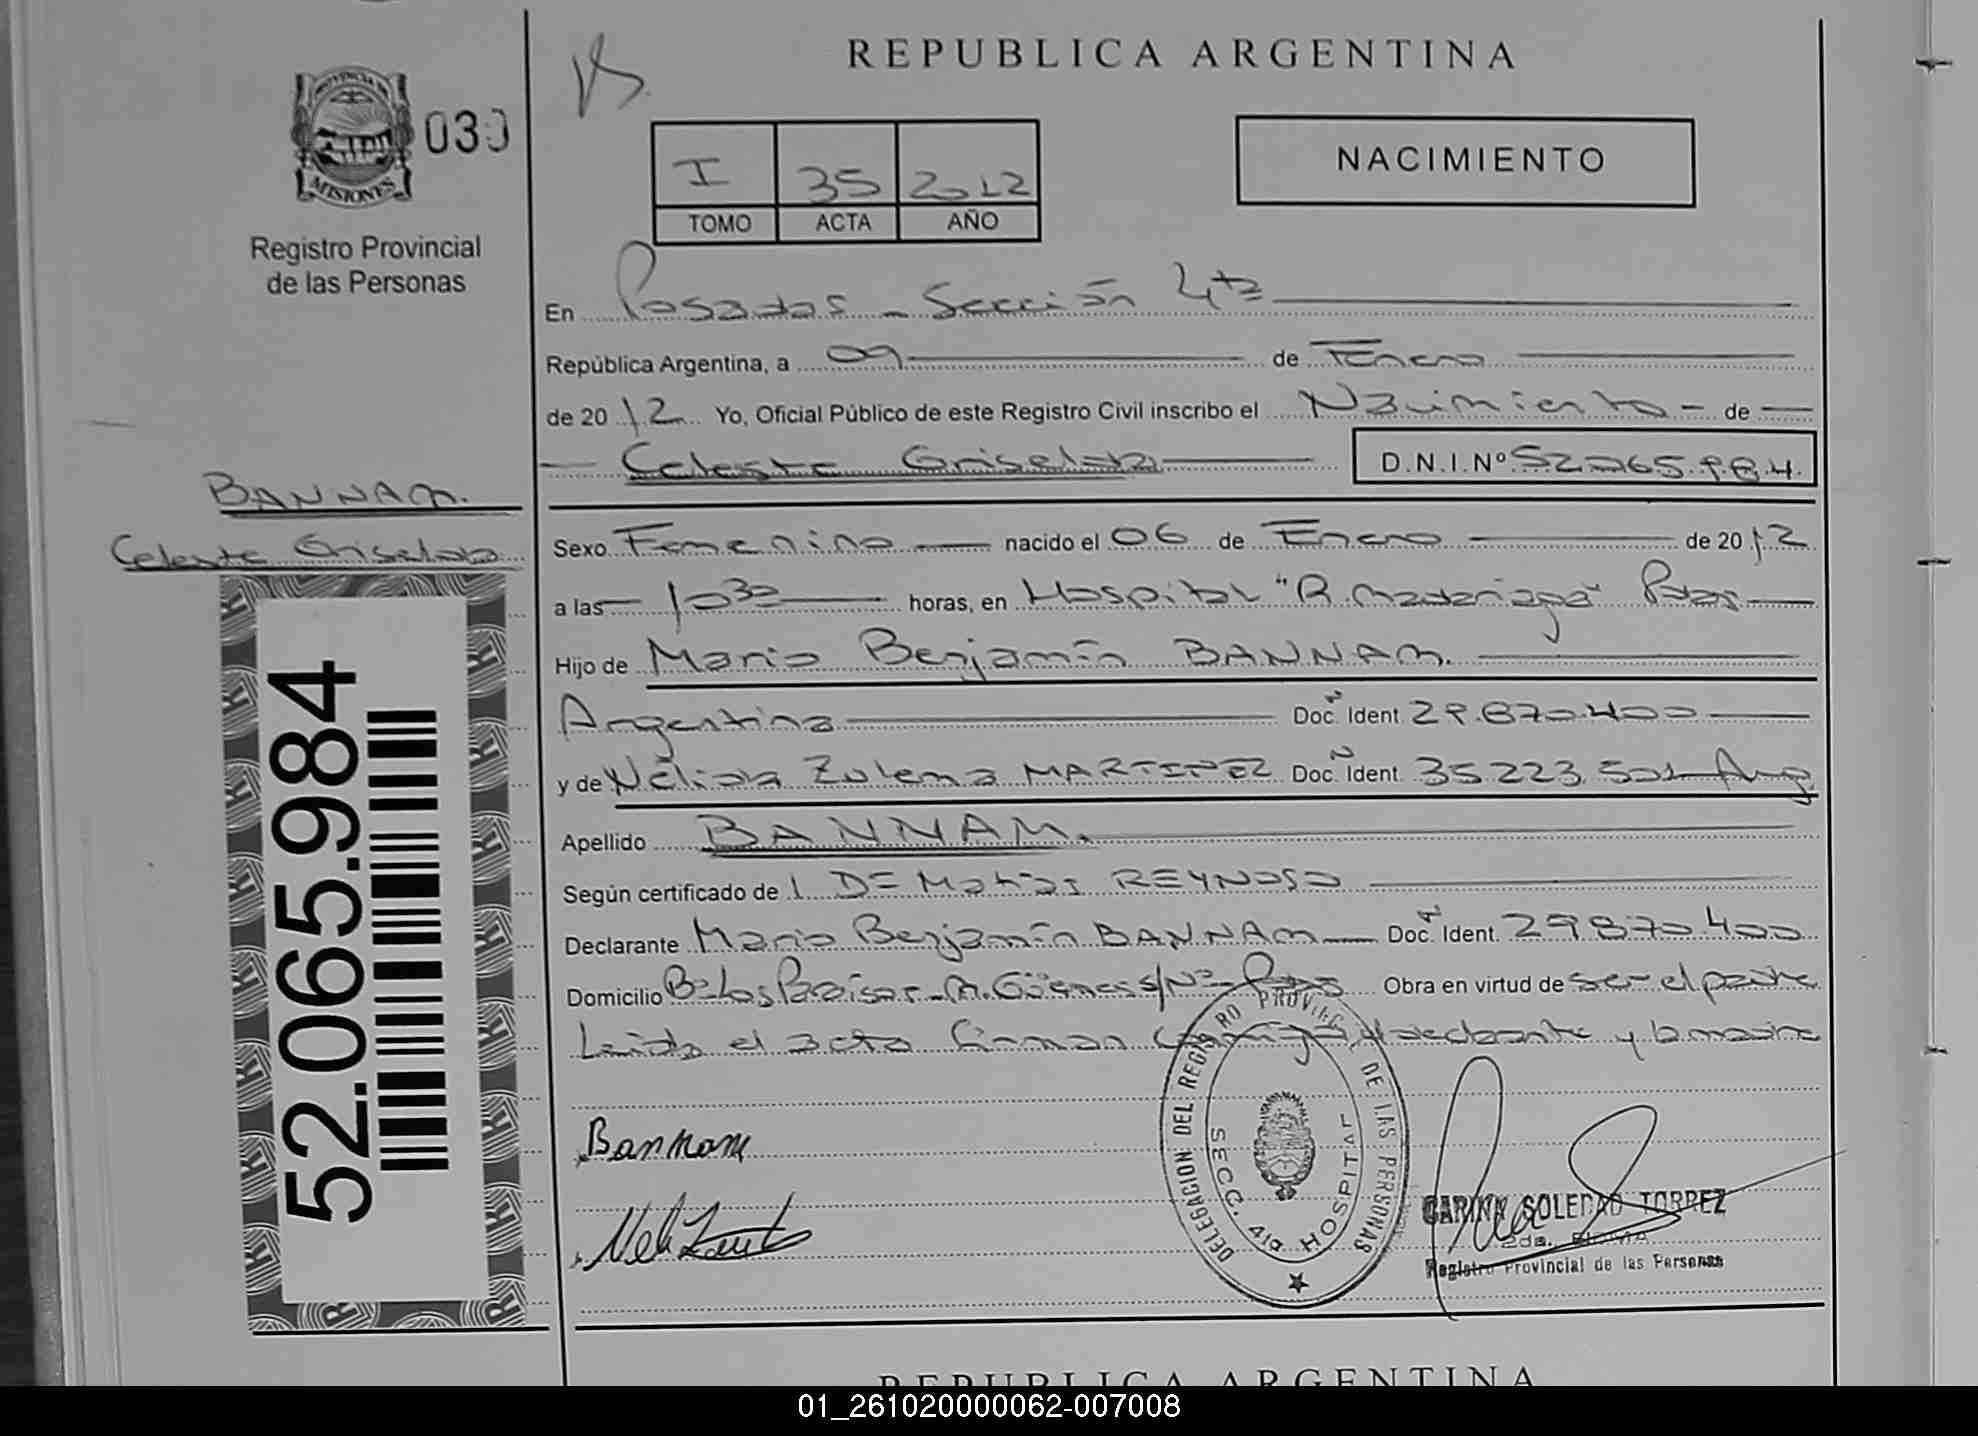 REPUBLICA ARGENTINA
030
MISIONES
Registro Provincial
de las Personas
NACIMIENTO
I 35 2012
TOMO ACTA AÑO
En Posadas - Sección 4ta
República Argentina, a 09 de Enero
de 2012 Yo, Oficial Público de este Registro Civil inscribo el Nacimiento - de
Celeste Griselda D.N.I.Nº 52.065.984.
BANNAM.
Celeste Griselda
Sexo Femenino nacido el 06 de Enero de 2012
a las 10 30 horas, en Hospital "R. Madariaga" Pdas
Hijo de Mario Benjamín BANNAM.
Argentina Doc. Ident. 29.870.400
y de Nélida Zulema MARTINEZ Doc. Ident. 35.223.501 Arg
Apellido BANNAM.
Según certificado de DE Matías REYNOSO
Declarante Mario Benjamín BANNAM Doc. Ident. 29.870.400
Domicilio Bº Los Paraísos - M. Güemes s/Nº Pdas Obra en virtud de ser el padre
Leída el acta firman conmigo el declarante y la madre
52.065.984
Bannam
DELEGACION DEL REGISTRO PROVINCIAL DE LAS PERSONAS
SECC. 4ta HOSPITAL
CARINA SOLEDAD TORREZ
2da. FIRMA
Registro Provincial de las Personas
REPUBLICA ARGENTINA
01_261020000062-007008